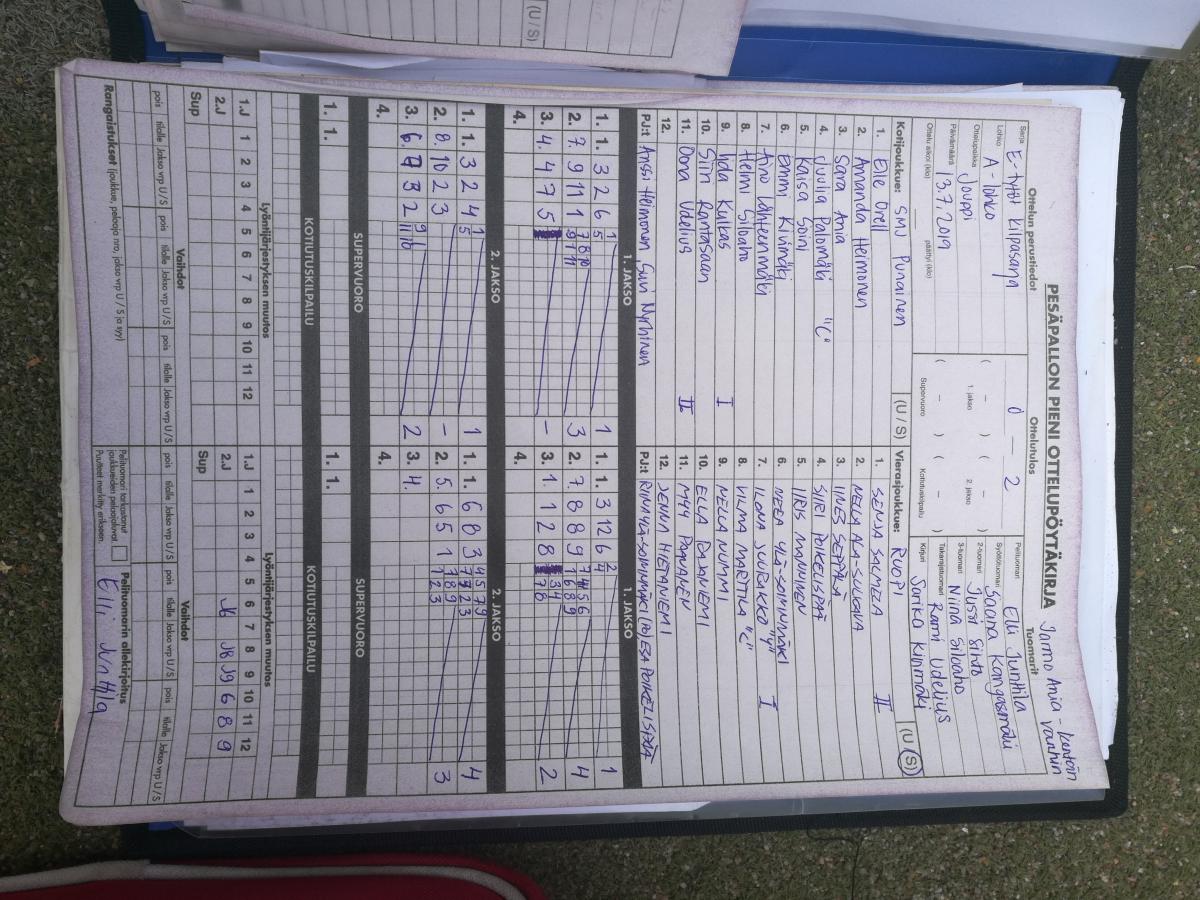 (U / S)
PESÄPALLON PIENI OTTELUPÖYTÄKIRJA
Jarmo Ania - kentän vanhin
Ottelun perustiedot
Ottelutulos
Tuomarit
Sarja E-tytöt kilpasarja
Lohko A-lohko
Ottelupaikka Jouppi
Päivämäärä 13.7.2019
Ottelu alkoi (klo) päättyi (klo)
0 – 2
( – ) ( – )
1. jakso 2. jakso
( – ) ( – )
Supervuoro Kotiutuskilpailu
Pelituomari Elli Junttila
Syöttötuomari Saana Kangasmäki
2-tuomari Jussi Sihto
3-tuomari Niina Siloaho
Takarajatuomari Rami Udelius
Kirjuri Sarika Kivimäki
Kotijoukkue: SMJ Punainen (U / S)
1. Elle Orell
2. Amanda Heimonen
3. Sara Ania
4. Juulia Palomäki "C"
5. Kaisa Soini
6. Emmi Kivimäki
7. Aino Lähteenmäki
8. Helmi Siloaho
9. Iida Kulkas I
10. Siiri Rantasaari
11. Oona Udelius II
12.
PJ:t Anssi Heimonen, Suvi Nyrhinen
Vierasjoukkue: RUOPI (U / S)
1. SENJA SALMELA II
2. NELLA ALA-SULKAVA
3. IINES SEPPÄLÄ
4. SIIRI POIKELISPÄÄ
5. IIRIS MANNINEN
6. NEEA YLÄ-SOININMÄKI
7. ILONA JUURAKKO "J" I
8. VILMA MARTTILA "C"
9. NELLA NUMMI
10. ELLA RAJANIEMI
11. MYY PAANANEN
12. JENNA HIETANIEMI
PJ:t RIINA YLÄ-SOININMÄKI (PJ) ESA POIKELISPÄÄ
1. JAKSO
1. 1. 3 2 6 5 1 1
2. 7. 9 11 1 3
3. 4. 4 7 5 –
4.
1. JAKSO
1. 1. 3 12 6 4 2 1
2. 7. 8 8 9 4
3. 1. 1 2 8 2
4.
2. JAKSO
1. 1. 3 2 4 5 1 1
2. 8. 10 2 3 –
3. 6. 7 3 2 2
4.
2. JAKSO
1. 1. 6 8 3 4
2. 5. 6 5 1 3
3. 4.
4.
SUPERVUORO
1. 1.
1. 1.
KOTIUTUSKILPAILU
KOTIUTUSKILPAILU
Lyöntijärjestyksen muutos
1.J 1 2 3 4 5 6 7 8 9 10 11 12
2.J
Sup
Lyöntijärjestyksen muutos
1.J 1 2 3 4 5 6 7 8 9 10 11 12
2.J J1 J8 J9 6 8 9
Sup
Vaihdot
pois tilalle Jakso vrp U / S pois tilalle Jakso vrp U / S pois tilalle Jakso vrp U / S
pois tilalle Jakso vrp U / S pois tilalle Jakso vrp U / S pois tilalle Jakso vrp U / S
Rangaistukset (joukkue, pelaaja nro, jakso vrp U / S ja syy)
Pelituomari tarkastanut joukkueiden pelaajahvat. Puutteet merkitty erikseen.
Pelituomarin allekirjoitus
Elli Junttila